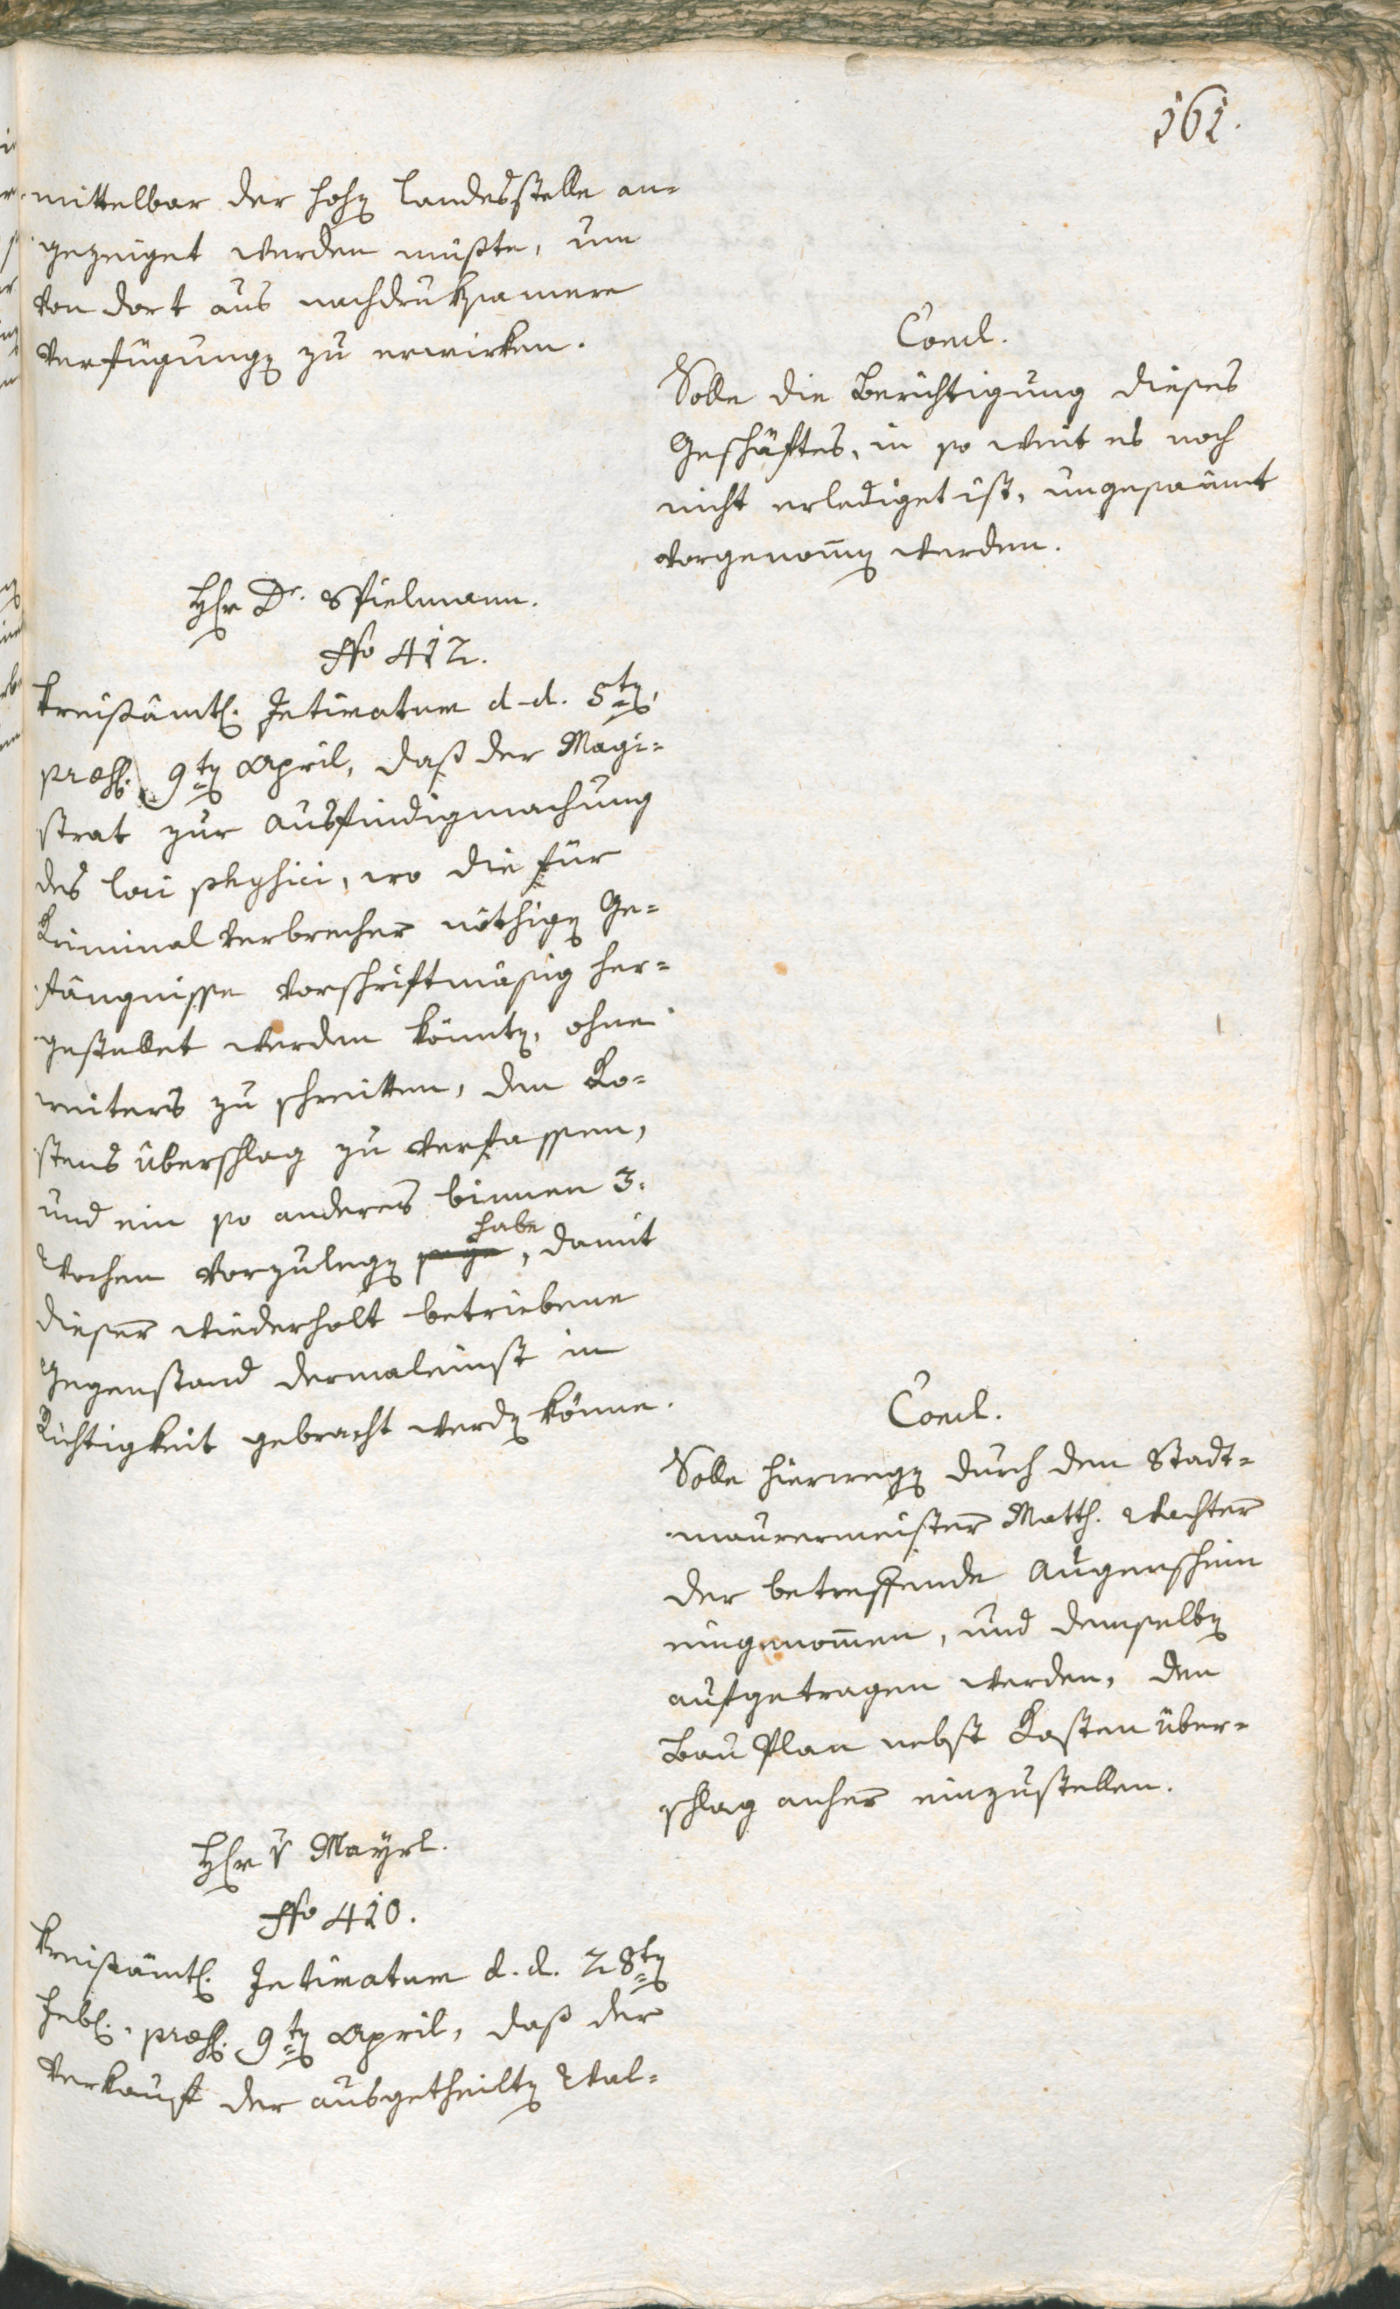 161.
mittelbar der hohen Landesstelle an-
gezeiget werden müßte, um
von dort aus nachdruksamere
Verfügungen zu erwirken.
Concl.
Solle die Berichtigung dieses
Geschäftes, in so weit es noch
nicht erlediget ist, ungesäumt
vorgenom̅en werden.
Hr Dr. Spielmann.
No 412.
Kreisämtl. Intimatum d. d. 5ten,
præs. 9ten April, daß der Magi-
strat zur Ausfindigmachung
des loci physici, wo die für
Kriminalverbrecher nöthigen Ge-
fängnisse vorschriftmäsig her-
gestellet werden könnten, ohne
weiters zu schreitten, den Ko-
stens überschlag zu verfassen,
und ein so anderes binnen 3.
Wochen vorzulegen habe, damit
dieser wiederholt betriebene
Gegenstand dermaleinst in
Richtigkeit gebracht werden könne.
Concl.
Solle hierwegen durch den Stadt-
maurermeister Matth. Wachter
der betreffende Augenschein
eingenom̅en, und demselben
aufgetragen werden, den
Bau Plan nebst Kosten über-
schlag anher einzustellen.
Hr v Mayrl.
No 410.
Kreisämtl. Intimatum d. d. 28ten
Febr. præs. 9ten April, daß der
Verkauf der ausgetheilten Wal-